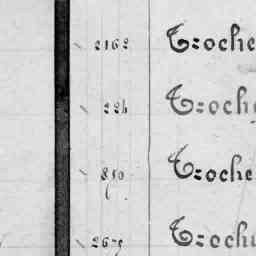 2162 Troche
224 Troche
850 Troche
2679 Troch